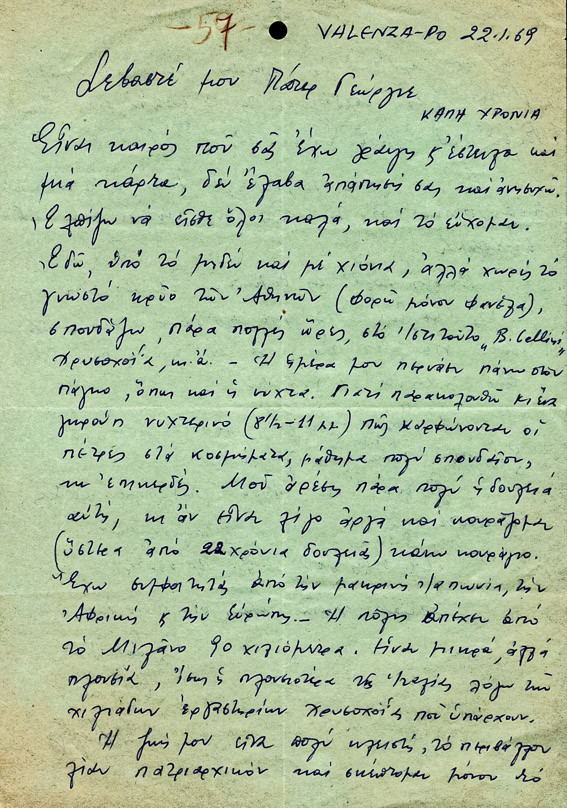 -57-
VALENZA-PO 22.1.69
Σεβαστέ μου Πάτερ Γεώργιε
ΚΑΛΗ ΧΡΟΝΙΑ
Εἶναι καιρός ποῦ σᾶς ἔχω γράψη κ' ἔστειλα καί
μιά κάρτα, δέν ἔλαβα ἀπάντησή σας καί ἀνησυχῶ.
Ἐλπίζω νά εἶσθε ὅλοι καλά, καί τό εὔχομαι.
Ἐδῶ, ὑπό τό μηδέν καί μέ χιόνια, ἀλλά χωρίς τό
γνωστό κρύο τῶν Ἀθηνῶν (φορῶ μόνον φανέλα),
σπουδάζω, πάρα πολλές ὧρες, στό Ἰστιτοῦτο "B. Cellini"
χρυσοχοΐα, κ.ἄ. - Ἡ ἡμέρα μου περνάει πάνω στόν
πάγκο, ὅπως καί ἡ νύχτα. Γιατί παρακολουθῶ κι ἕνα
γκρούπ νυχτερινό (8½-11 μμ) πῶς καρφώνονται οἱ
πέτρες στά κοσμήματα, μάθημα πολύ σπουδαῖον,
κι ἐπικερδές. Μοῦ ἀρέση πάρα πολύ ἡ δουλειά
αὐτή, κι ἄν εἶναι λίγο ἀργά καί κουράζομαι
(ὕστερα ἀπό 22 χρόνια δουλειᾶς) κάνω κουράγιο.
Ἔχω συμφοιτητάς ἀπό τήν μακρινή Ἰαπωνία, τήν
Ἀφρική κ τήν Εὐρώπη. - Ἡ πόλις ἀπέχει ἀπό
τό Μιλᾶνο 90 χιλιόμετρα. Εἶναι μικρά, ἀλλά
πλουσία, ἴσως ἡ πλουσιοτέρα τῆς Ἰταλίας λόγω τῶν
χιλιάδων ἐργαστηρίων χρυσοχοΐας ποῦ ὑπάρχουν.
Ἡ ζωή μου εἶναι πολύ κλειστή, τό περιβάλλον
λίαν πατριαρχικόν καί σκέπτομαι μόνον τό